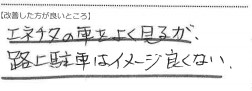 【改善した方が良いところ】
エネチタの車をよく見るが、
路上駐車はイメージ良くない。